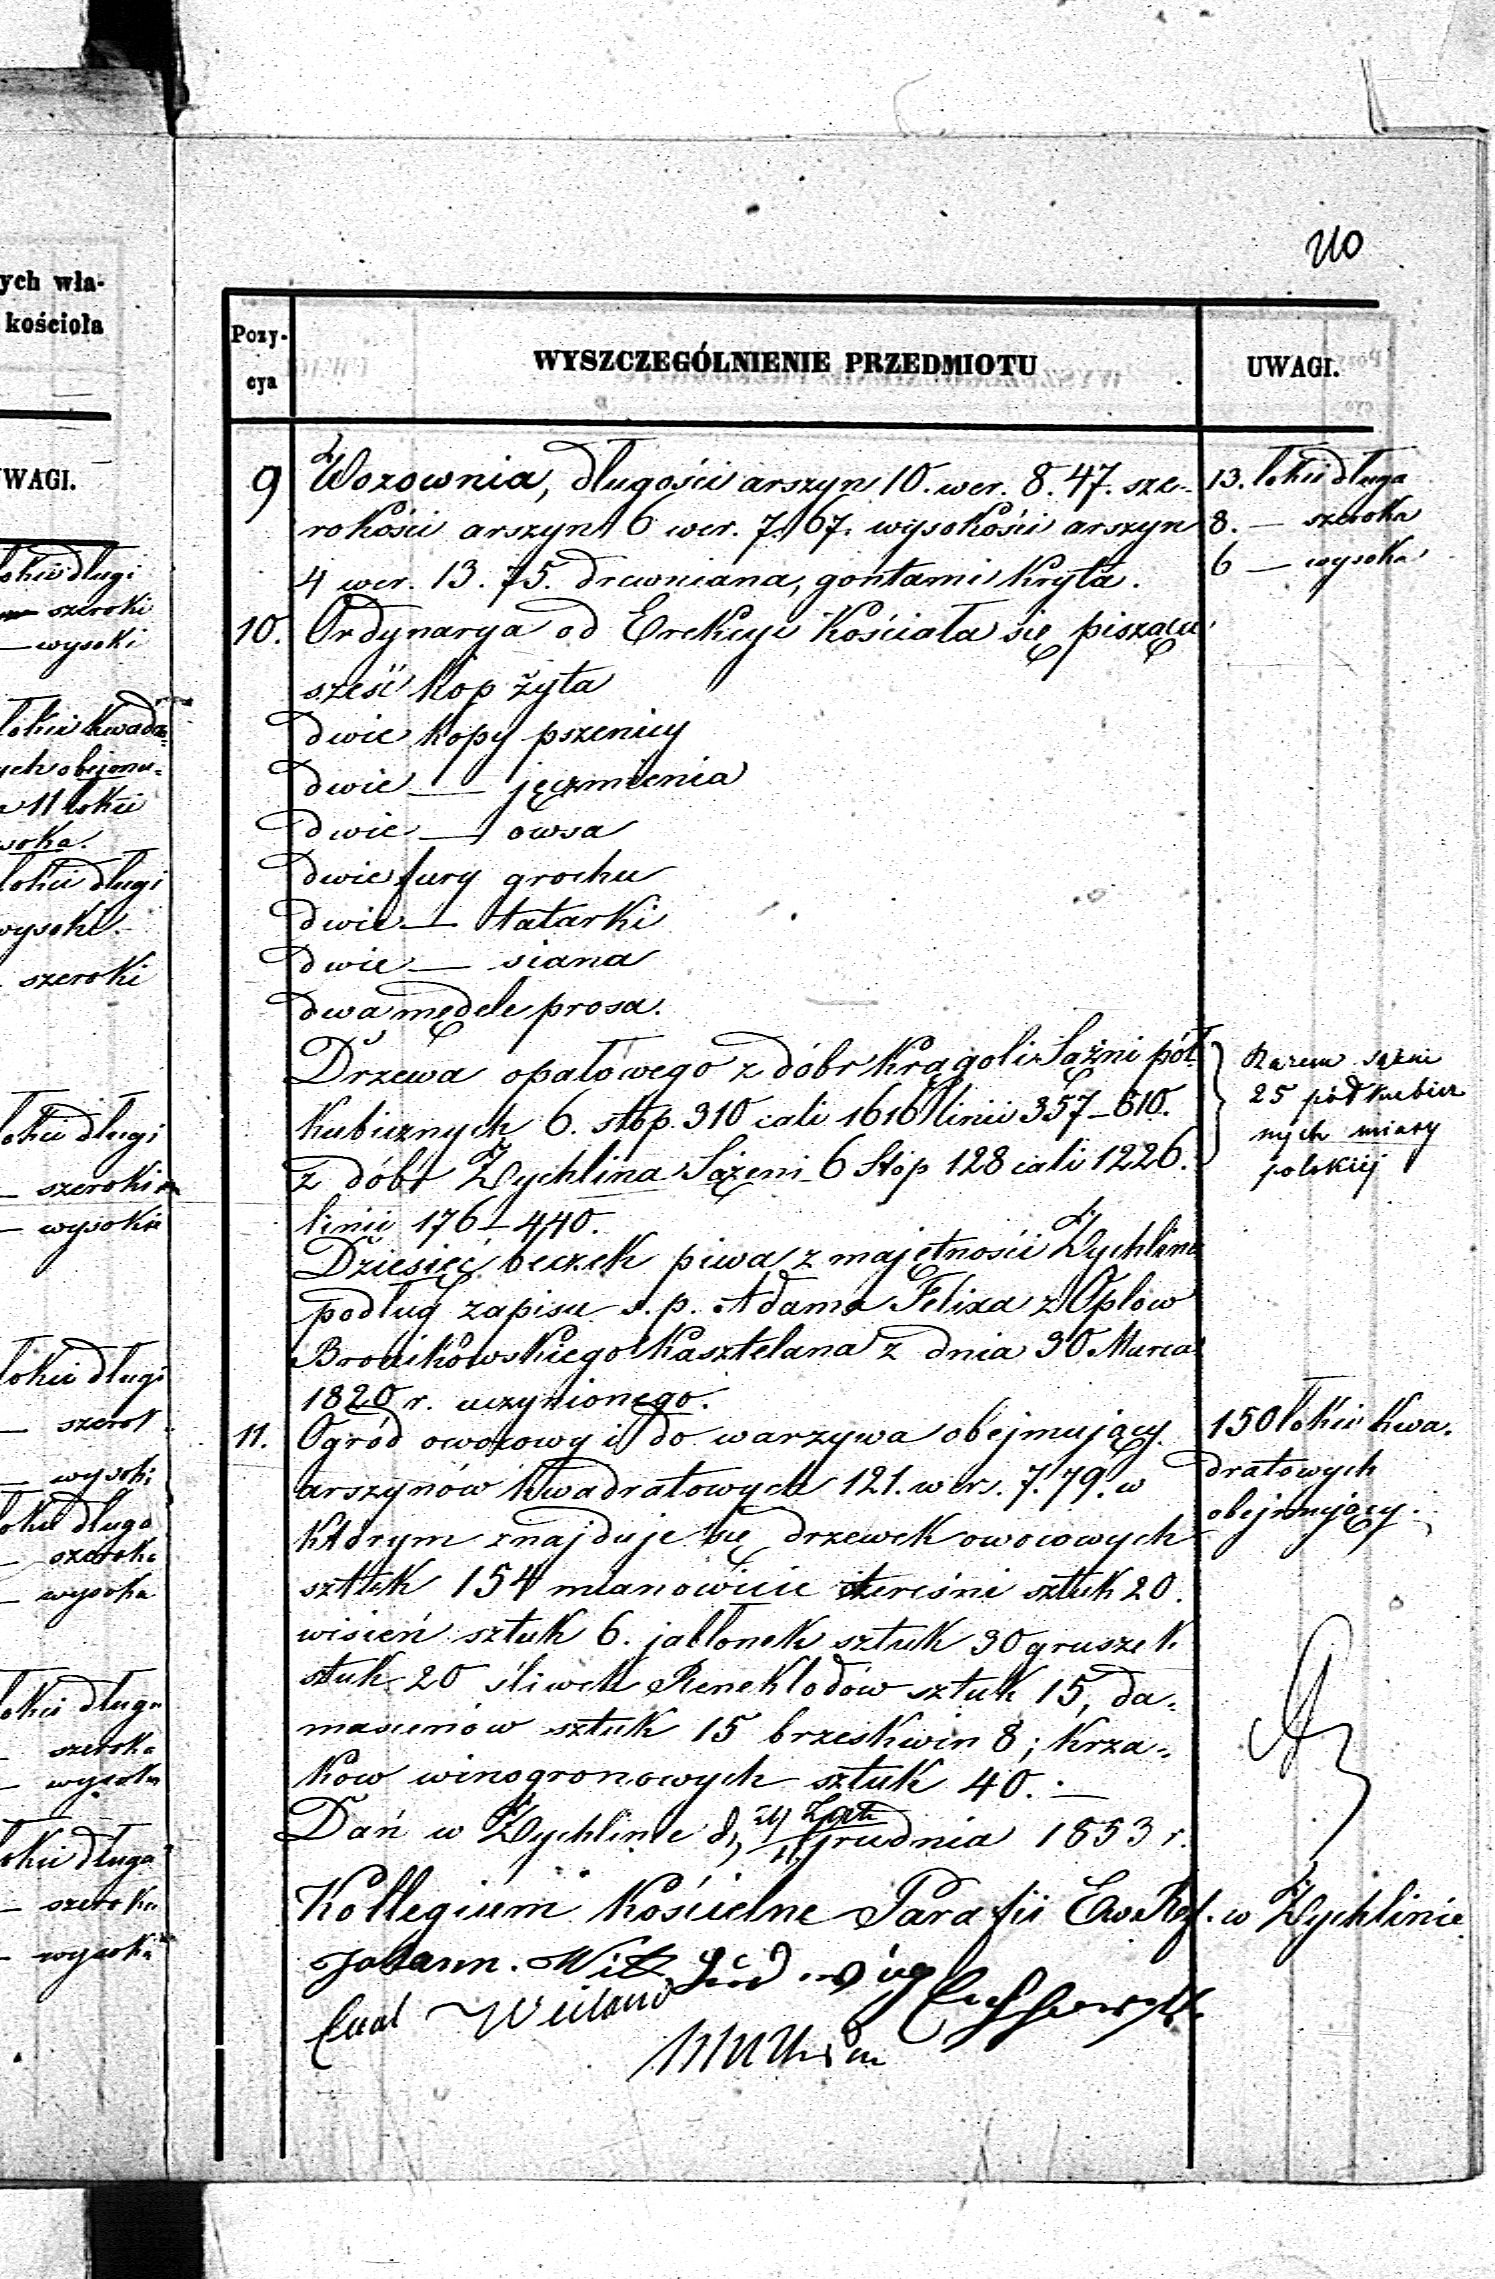 ych wła-
kościoła
WAGI.
łokci długi
szeroki
— wysoki
łokci kwadra-
ych objemu-
11 łokci
soka.
łokci długi
wysoki.
szeroki
łokci długi
— szeroki
— wysoki
łokci długi
— szerok
— wysoki
łokci długa
— szeroka
— wysoka
łokci długa
— szeroka
— wysoka
łokci długa
— szeroka
— wysoka
210
Pozy-
cya
WYSZCZEGÓLNIENIE PRZEDMIOTU
UWAGI.
9 Wozownia, długości arszyn 10. wer. 8.47. sze- 13. łokci długa
rokości arszyn 6 wer. 7.67. wysokości arszyn 8. — szeroka
4 wer. 13.75. drewniana, gontami kryta. 6 — wysoka
10. Ordynarya od Erekcyi kościoła się pisząca
sześć kop żyta
dwie kopy pszenicy
dwie — jęczmienia
dwie — owsa
dwie fury grochu
dwie — tatarki
dwie — siana
dwa mędele prosa.
Drzewa opałowego z dóbr Krągoli Sążni pół- Razem sążni
kubicznych 6. stop. 310 cali 1616 linii 357-610. 25 półkubicz
z dóbr Żychlina Sążeni 6 Stóp 128 cali 1226. nych miary
linii 176-440. polskiej
Dziesięć beczek piwa z majętności Żychlina
podług zapisu s.p. Adama Felixa z Oplow
Bronikowskiego Kasztelana z dnia 30 Marca
1820 r. uczynionego.
11. Ogród owocowy i do warzywa obejmujący 150 łokci kwa-
arszynów kwadratowych 121. wers. 7.79. w dratowych
którym znajduje się drzewek owocowych obejmujący.
sztuk 154 mianowicie czereśni sztuk 20.
wisień sztuk 6. jabłonek sztuk 30 gruszek
sztuk 20 śliwek Reneklodów sztuk 15, da-
mascenów sztuk 15 brzeskwin 8; krza-
ków winogronowych sztuk 40. —
Dań w Żychlinie d. Grudnia 1853 r.
Kollegium Kościelne Parafii Ew. Ref. w Żychlinie
Johann. Ludwig
Weiland